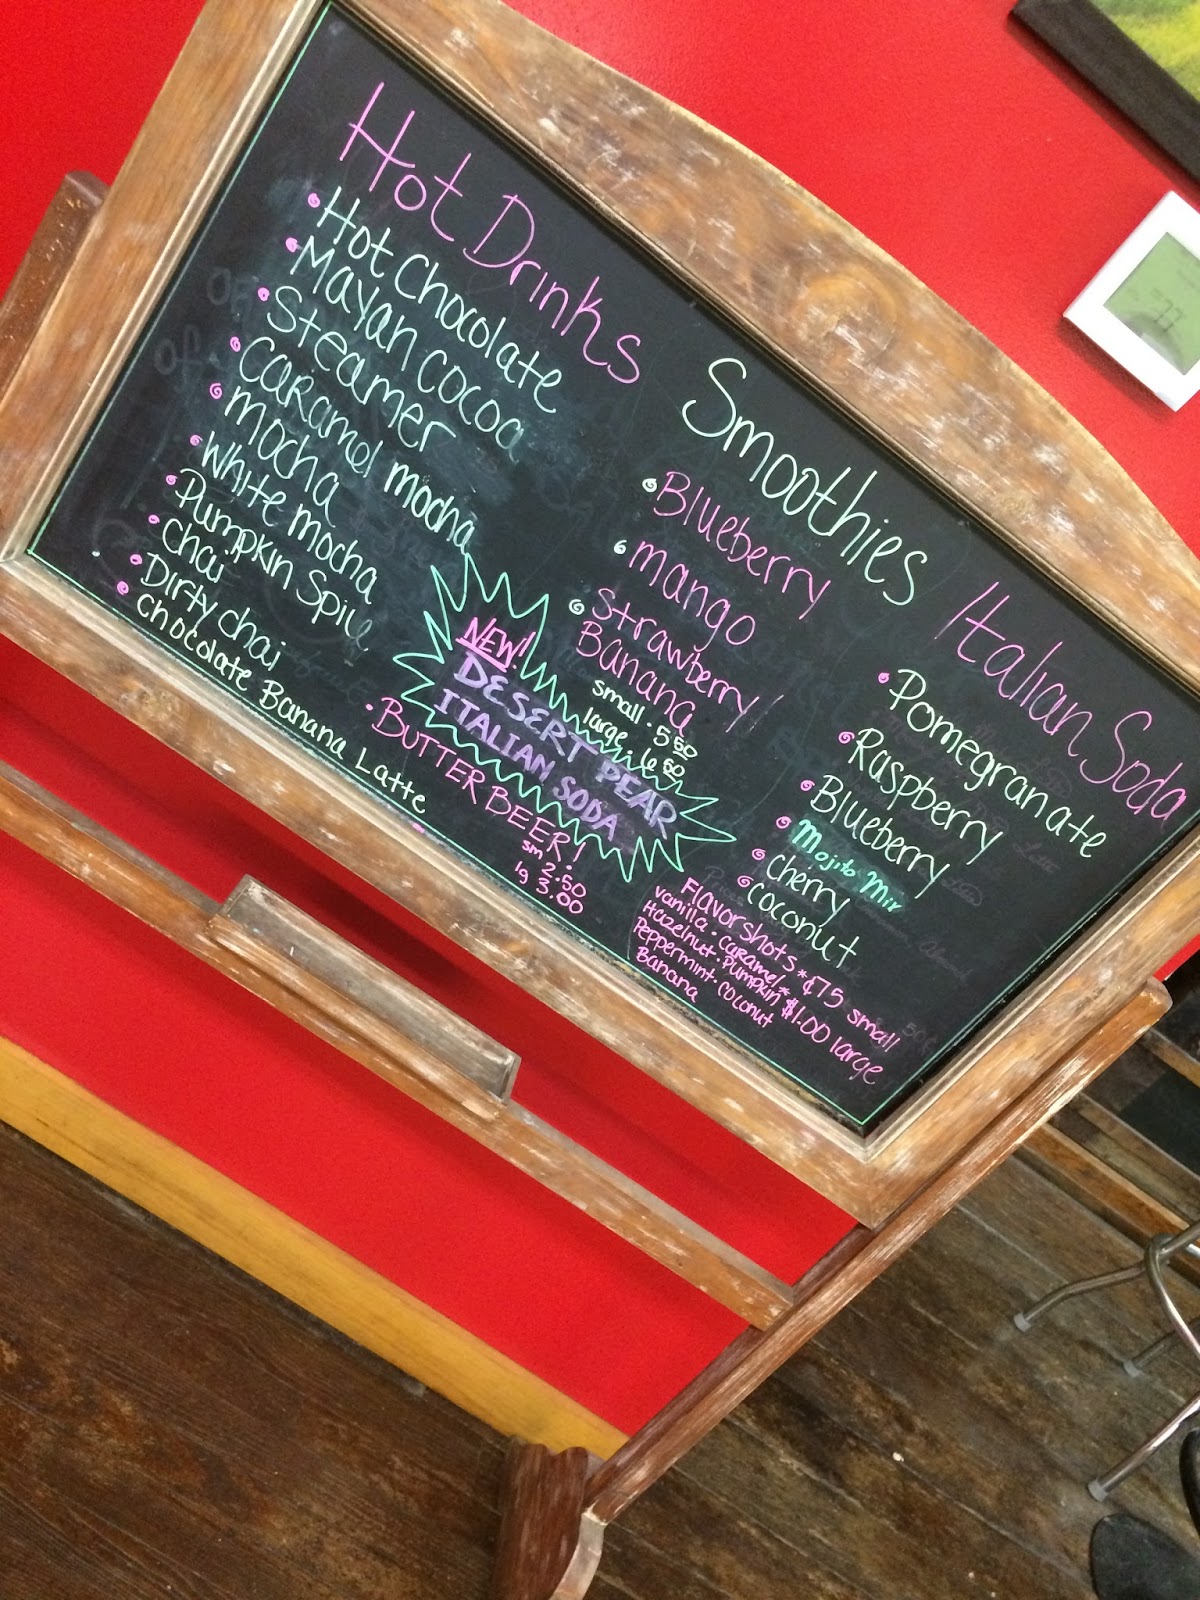 Hot Drinks
Hot Chocolate
Mayan Cocoa
Steamer
Caramel mocha
mocha
White mocha
Pumpkin Spice
chai
Dirty chai
Chocolate Banana Latte
BUTTER BEER!
sm 2.50
lg 3.00
NEW!
DESERT PEAR
ITALIAN SODA
Smoothies
Blueberry
mango
Strawberry/
Banana
small . 5.50
large . 6.50
Italian Soda
Pomegranate
Raspberry
Blueberry
Mojito Mix
Cherry
Coconut
Flavorshots * ¢75 small
vanilla · caramel *
Hazelnut · Pumpkin $1.00 large
Peppermint · coconut
Banana
73